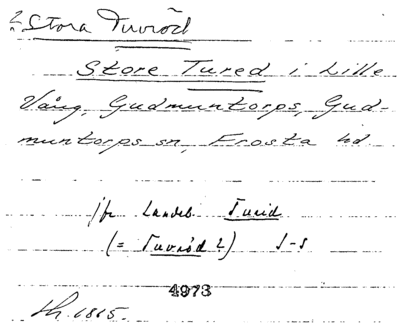 ? Stora Tuvröd
Store Tured i Lille
Vång, Gudmuntorps, Gud-
muntorps sn, Frosta hd.
jfr Landeb Turid
(= Tuvröd?) J-s
4973
Sk. 1815.